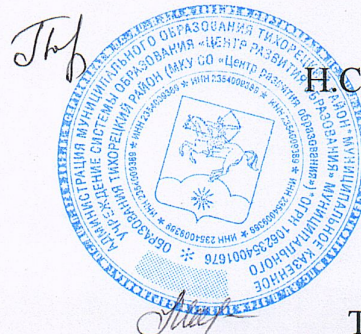 Н.С
АДМИНИСТРАЦИЯ МУНИЦИПАЛЬНОГО ОБРАЗОВАНИЯ ТИХОРЕЦКИЙ РАЙОН* МУНИЦИПАЛЬНОЕ КАЗЕННОЕ
УЧРЕЖДЕНИЕ СИСТЕМЫ ОБРАЗОВАНИЯ «ЦЕНТР РАЗВИТИЯ ОБРАЗОВАНИЯ» МУНИЦИПАЛЬНОГО
ОБРАЗОВАНИЯ ТИХОРЕЦКИЙ РАЙОН (МКУ СО «Центр развития образования») *ОГРН 1062354001676 *
ИНН 2354009389 * ИНН 2354009389 * ИНН 2354009389 * ИНН 2354009389
Т